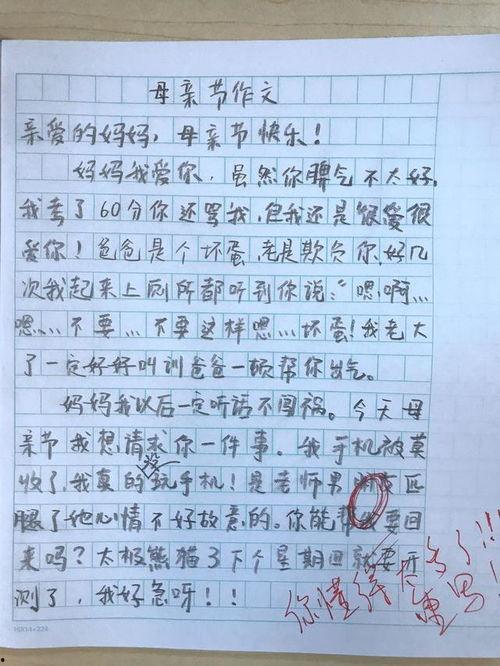 母亲节作文
亲爱的妈妈，母亲节快乐！
妈妈我爱你，虽然你脾气不太好，
我考了60分你还骂我，但我还是很爱很
爱你！爸爸是个坏蛋，老是欺负你，好几
次我起来上厕所都听到你说：“嗯…啊…
嗯……不要…不要这样嗯…坏蛋！我老大
了一定好好叫训爸爸一顿帮你出气。
妈妈我以后一定听话不闯祸。今天母
亲节我想请求你一件事。我手机被莫
收了，我真的没玩手机！是老师男朋友匹
腿了她心情不好故意的。你能帮我要回
来吗？太极熊猫3下个星期四就要开
测了，我好急呀！！
你懂得太多了!!!